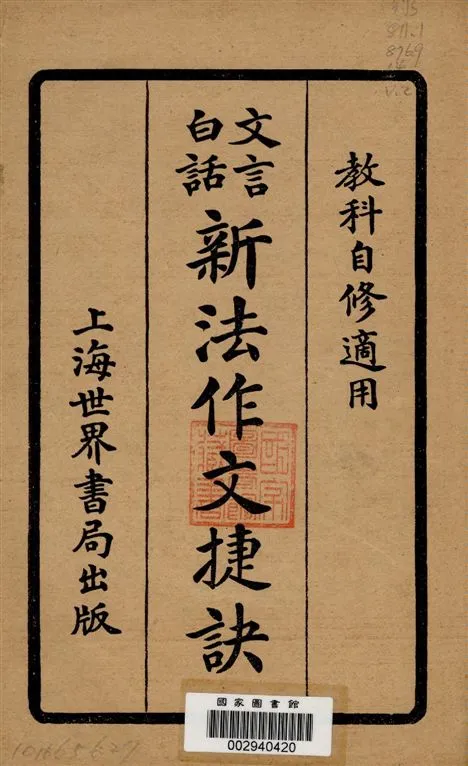 教科自修適用
文言
白話
新法作文捷訣
上海世界書局出版
國家圖書館
002940420